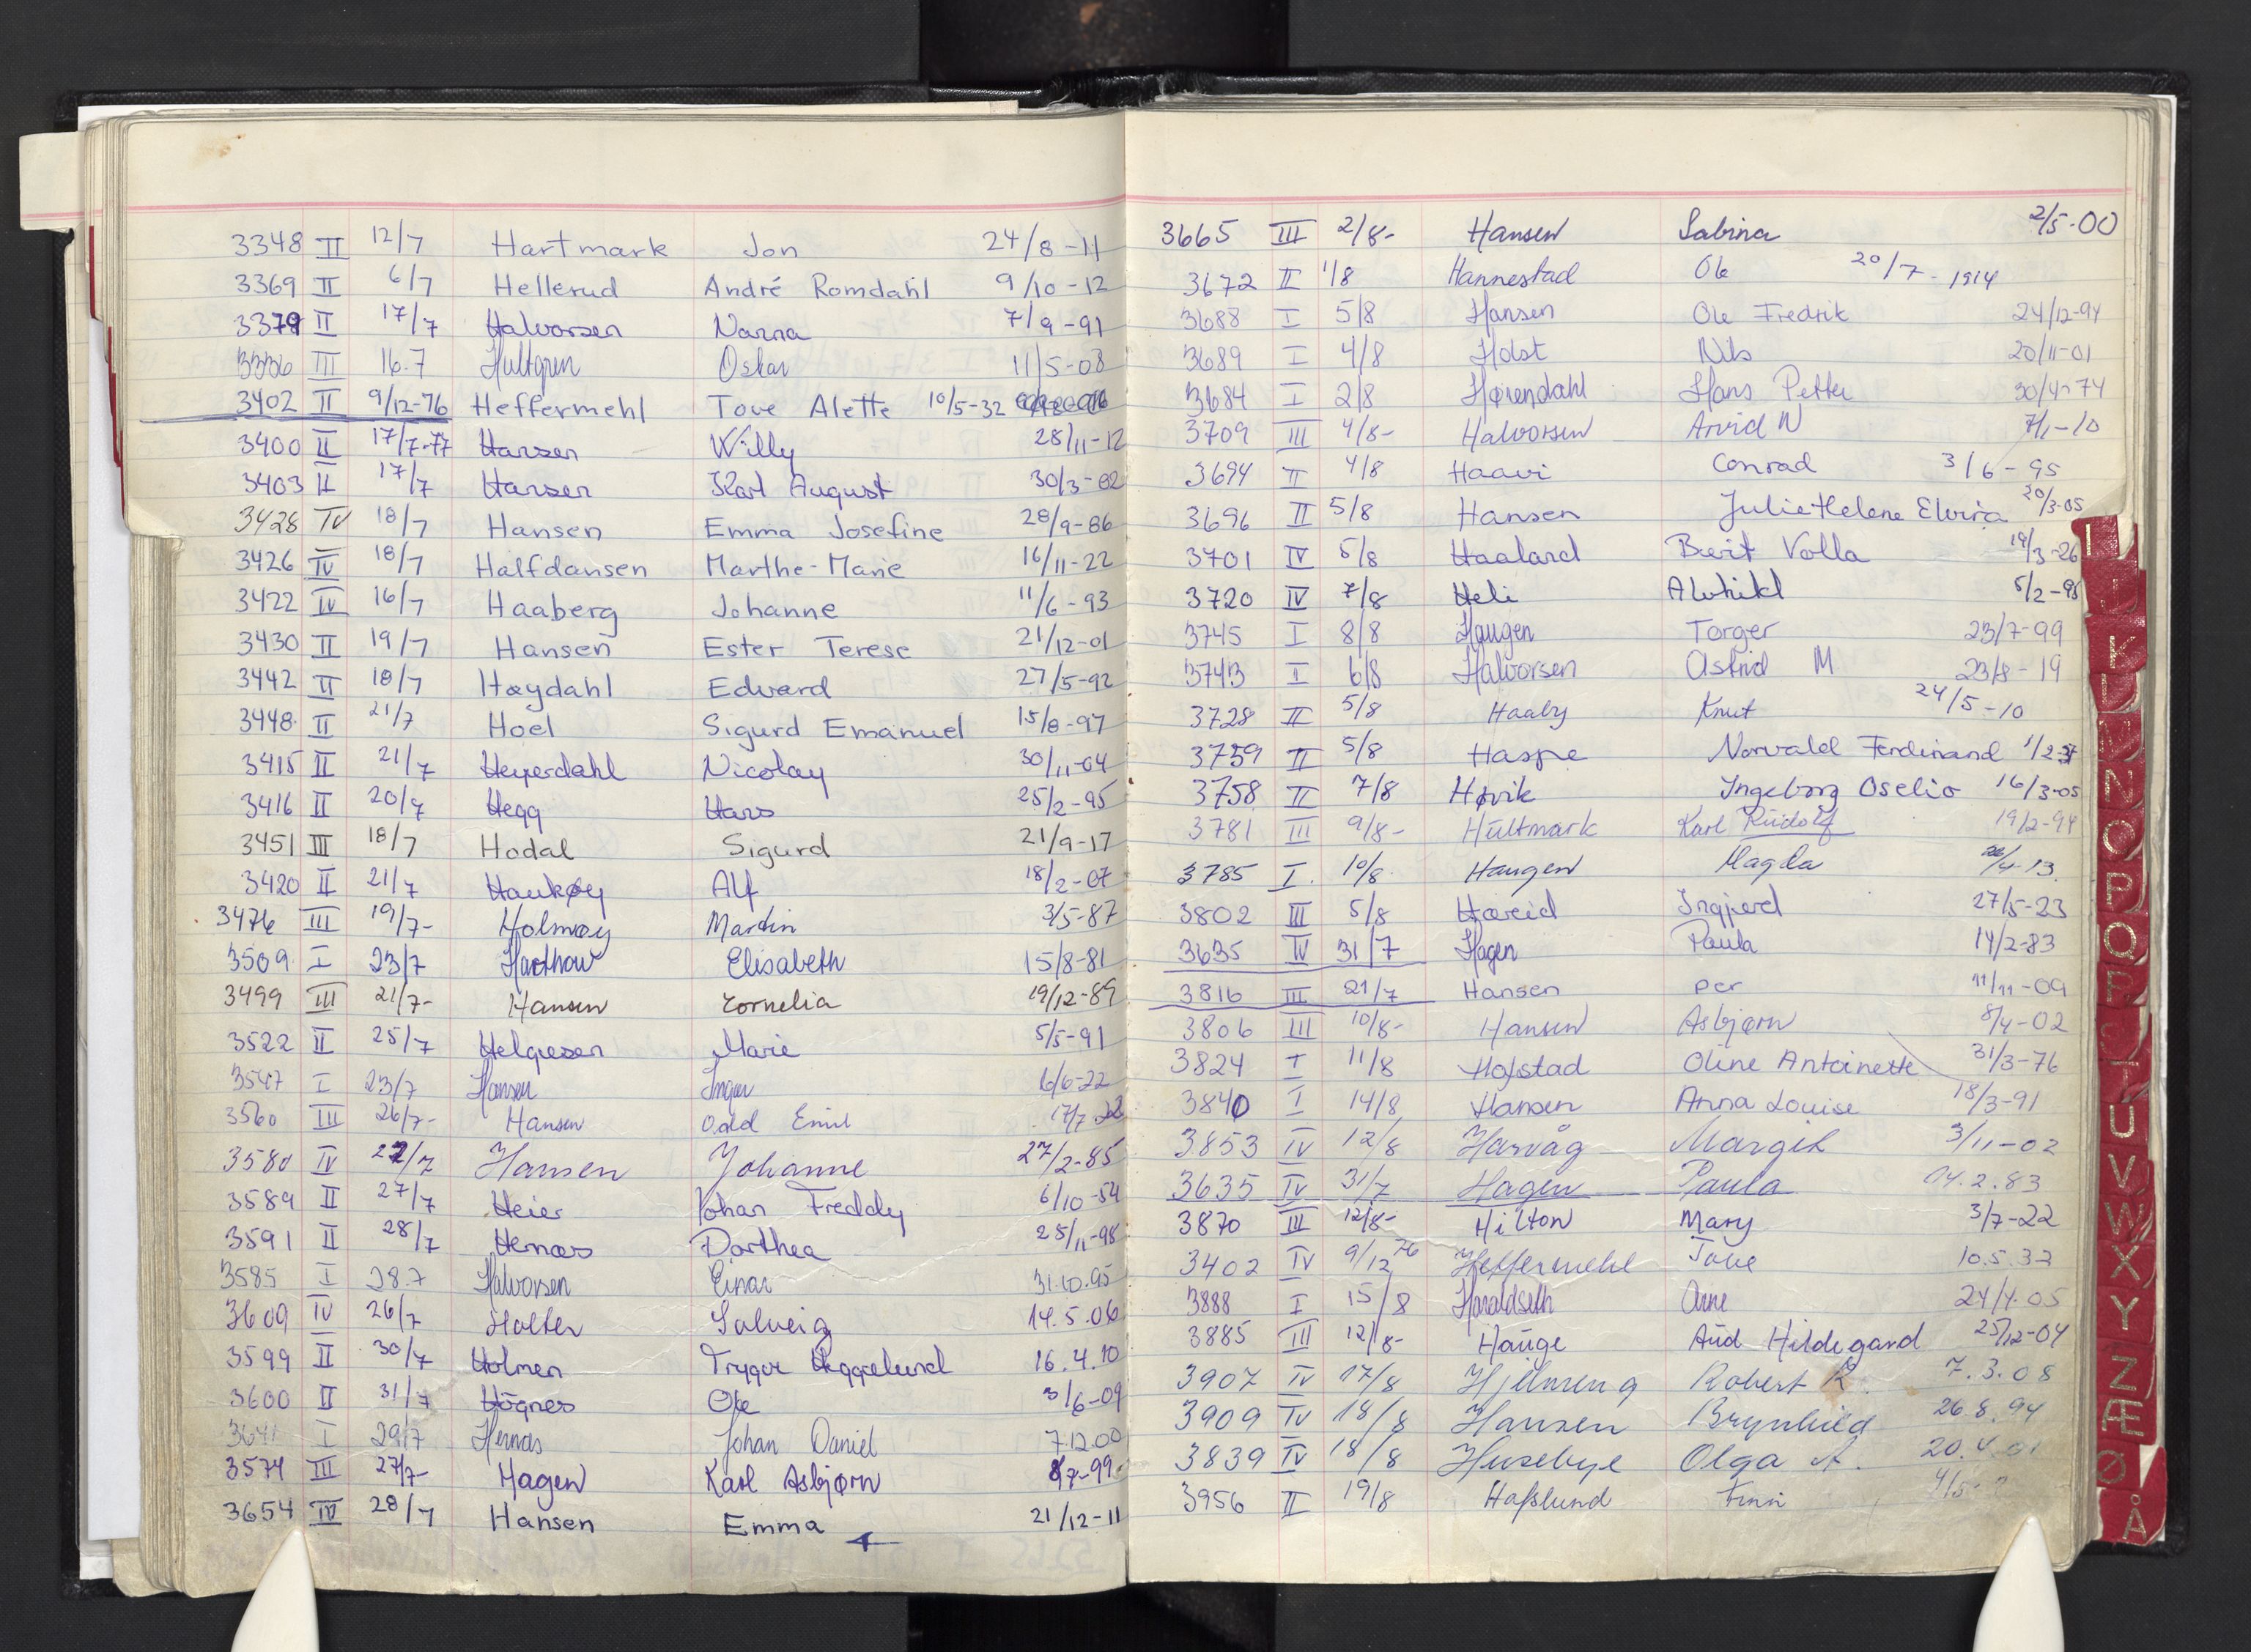 3348 II 12/7 Hartmark Jon 24/8-11
3369 II 6/7 Hellerud André Romdahl 9/10-12
3379 II 17/7 Halvorsen Nanna 7/9-91
III 16.7 Hultgren Oskar 11/5-08
3402 II 9/12-76 Heffermehl Tove Alette 10/5-32
3400 II 17/7-77 Hansen Willy 28/11-12
3403 II 17/7 Hansen Karl August 30/3-02
3428 IV 18/7 Hansen Emma Josefine 28/9-86
3426 IV 18/7 Halfdansen Marthe-Marie 16/11-22
3422 IV 16/7 Haaberg Johanne 11/6-93
3430 II 19/7 Hansen Ester Terese 21/12-01
3442 II 18/7 Høydahl Edvard 27/5-92
3448 II 21/7 Hoel Sigurd Emanuel 15/8-97
3415 II 21/7 Heyerdahl Nicolay 30/11-04
3416 II 20/7 Hegg Hans 25/2-95
3451 III 18/7 Hodal Sigurd 21/9-17
3420 II 21/7 Haukøy Alf 18/2-07
3476 III 19/7- Holmøy Martin 3/5-87
3509 I 23/7 Harthow Elisabeth 15/8-81
3499 III 21/7- Hansen Cornelia 19/12-89
3522 II 25/7 Helgesen Marie 5/5-91
3547 I 23/7 Hansen Inger 6/6-22
3560 III 26/7- Hansen Odd Emil 17/7
3580 IV /7 Hansen Johanne 27/2-85
3589 II 27/7 Heier Johan Freddy 6/10-54
3591 II 28/7 Hernæs Dorthea 25/11-98
3585 I 28.7 Halvorsen Einar 31.10.95
3609 IV 26/7 Holter Solveig 14.5.06
3599 II 30/7 Holmen Trygve Heggelund 16.4.10
3600 II 31/7 Högnes Ole 3/6-09
3641 I 29/7 Hernæs Johan Daniel 7.12.00
3574 III 27/7- Hagen Karl Asbjørn 7-99
3654 IV 28/7 Hansen Emma 21/12-11
3665 III 2/8- Hansen Sabina 2/5-00
3672 II 1/8 Hannestad Ole 20/7-1914
3688 I 5/8 Hansen Ole Fredrik 24/12-94
3689 I 4/8 Holst Nils 20/11-01
3684 I 2/8 Hørendahl Hans Petter 30/4-74
3709 III 4/8- Halvorsen Arvid N 7/1-10
3694 II 4/8 Haavi Conrad 3/6-95
3696 II 5/8 Hansen Julie Helene Elvira 20/3-05
3701 IV 5/8 Haaland Berit Volla 19/3-26
3720 IV 7/8 Heli Alvhild 5/2-98
3745 I 8/8 Haugen Torger 23/7-99
3743 I 6/8 Halvorsen Astrid M 23/8-19
3728 II 5/8 Haaby Knut 24/5-10
3759 II 5/8 Haspe Norvald Ferdinand 1/2
3758 II 7/8 Høvik Ingeborg Oselio 16/3-05
3781 III 9/8- Hultmark Karl Rudolf 19/2-94
3785 I. 10/8 Haugen Magda /4-13.
3802 III 5/8 Hareid Ingjerd 27/5-23
3635 IV 31/7 Hagen Paula 14/2-83
3816 III 21/7 Hansen per 11/11-09
3806 III 10/8- Hansen Asbjørn 8/4-02
3824 I 11/8 Hofstad Oline Antoinette 31/3-76
3840 I 14/8 Hansen Anna Louise 18/3-91
3853 IV 12/8 Harvåg Margit 3/11-02
3635 IV 31/7 Hagen Paula 14.2.83
3870 III 12/8- Hilton Mary 3/7-22
3402 IV 9/12 76 Heffermehl Tove 10.5.32
3888 I 15/8 Haraldseth Arne 24/4-05
3885 III 12/8- Hauge Aud Hildegard 25/12-04
3907 IV 17/8 Hjelmeng Robert R. 7.3.08
3909 IV 18/8 Hansen Brynhild 26.8.94
3839 IV 18/8 Husebye Olga A. 20.4.01
3956 II 19/8 Hafslund Finn 4/5-
I
J
K
L
M
N
O
P
Q
R
S
T
U
V
W
X
Y
Z
Æ
Ø
Å